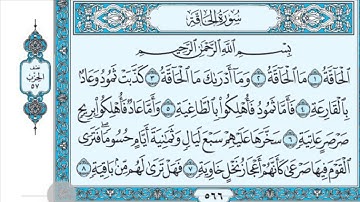 سُورَةُ الْحَاقَّةِ
بِسْمِ اللَّهِ الرَّحْمَٰنِ الرَّحِيمِ
الْحَاقَّةُ ١ مَا الْحَاقَّةُ ٢ وَمَا أَدْرَىٰكَ مَا الْحَاقَّةُ ٣ كَذَّبَتْ ثَمُودُ وَعَادٌ
بِالْقَارِعَةِ ٤ فَأَمَّا ثَمُودُ فَأُهْلِكُوا بِالطَّاغِيَةِ ٥ وَأَمَّا عَادٌ فَأُهْلِكُوا بِرِيحٍ
صَرْصَرٍ عَاتِيَةٍ ٦ سَخَّرَهَا عَلَيْهِمْ سَبْعَ لَيَالٍ وَثَمَٰنِيَةَ أَيَّامٍ حُسُومًا فَتَرَى
الْقَوْمَ فِيهَا صَرْعَىٰ كَأَنَّهُمْ أَعْجَازُ نَخْلٍ خَاوِيَةٍ ٧ فَهَلْ تَرَىٰ لَهُم مِّنۢ بَاقِيَةٍ ٨
نصف
الحزب
٥٧
٥٦٦